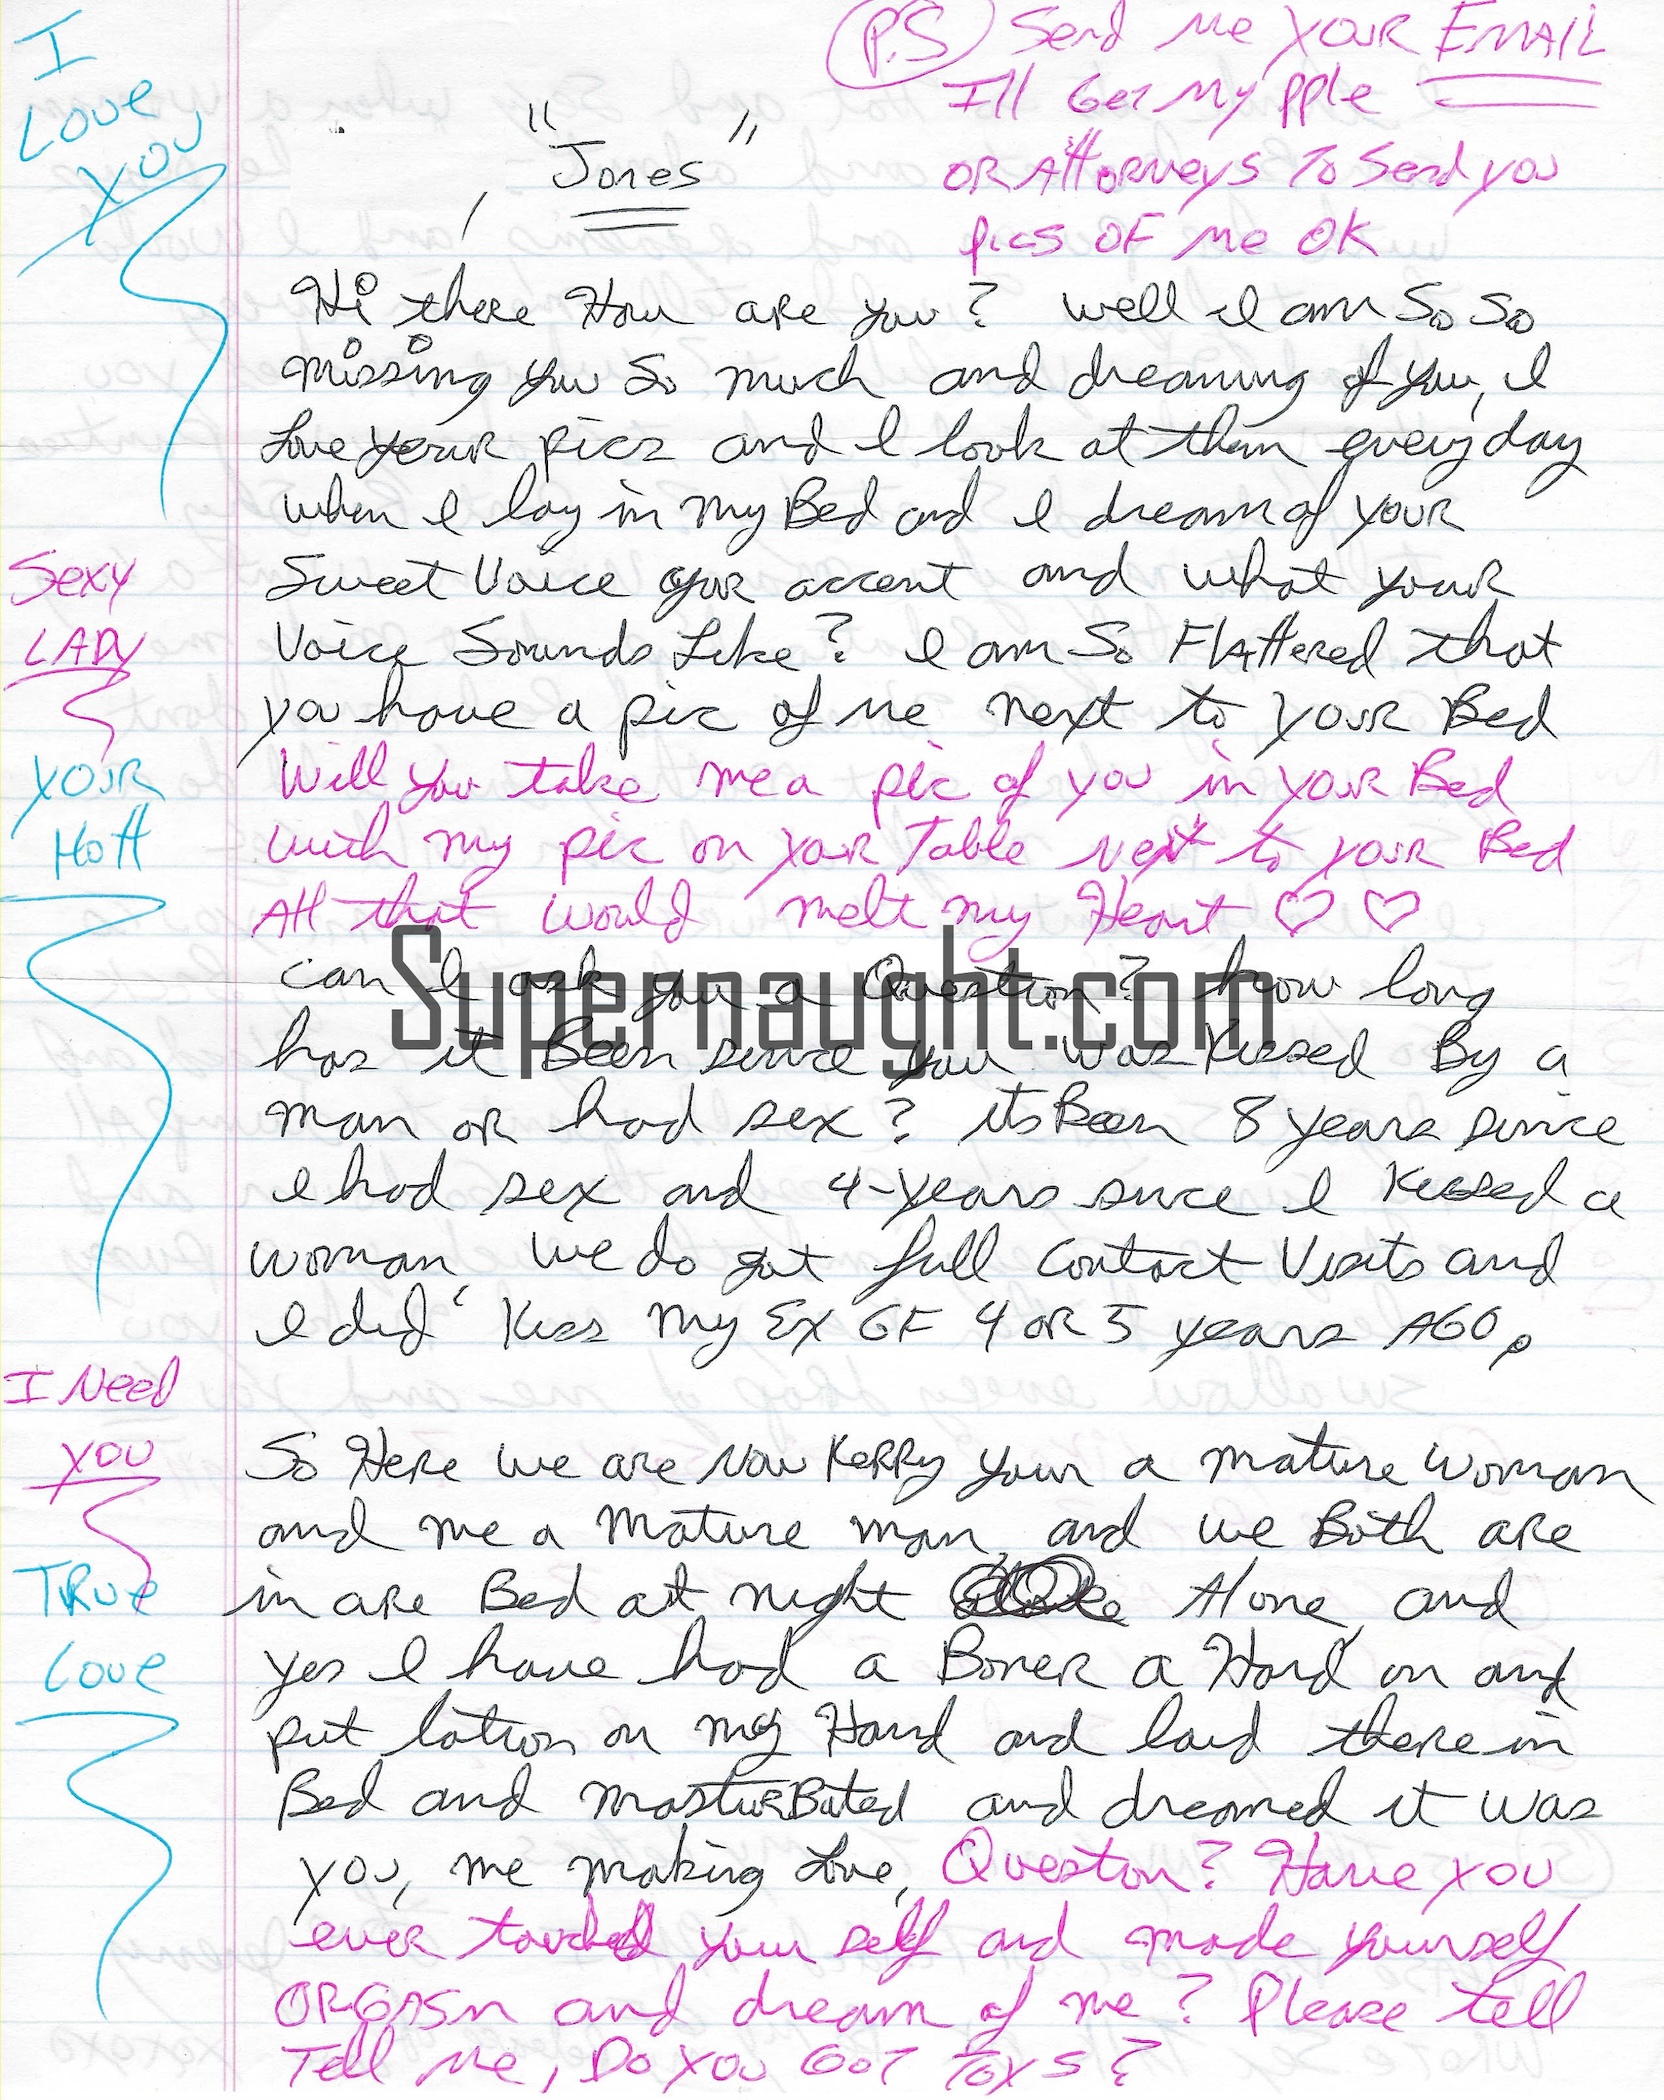 I
Love
You
P.S Send Me YOUR EMAIL
I'll Get My pple
OR Attorneys To Send you
pics OF Me OK
"Jones"
Hi there How are you? well I am So So
missing you So much and dreaming of you, I
Love your pics and I look at them everyday
when I lay in my Bed and I dream of your
Sweet Voice your accent and what your
Voice Sounds Like? I am So Flattered that
you have a pic of me next to your Bed
Sexy
LADY
Will you take me a pic of you in your Bed
with my pic on your Table next to your Bed
All that would melt my Heart ♡ ♡
YOUR
Hott
can I ask you a Question? how long
has it Been since you was Kissed By a
man or had sex? its Been 8 years since
I had sex and 4-years since I Kissed a
woman we do get full contact Visits and
I did Kiss my Ex GF 4 OR 5 years AGO,
Supernaught.com
I Need
YOU
So Here we are Now Kerry your a mature woman
and me a mature man, and we Both are
in are Bed at night Alone, and
yes I have had a Boner a Hard on and
put lotion on my Hand and laid there in
Bed and masturBated and dreamed it was
you, me making Love, Queston? Have you
ever touched your self and made yourself
ORGASM and dream of me? Please tell
Tell Me, Do YOU GOT TOYS?
TRUe
Love